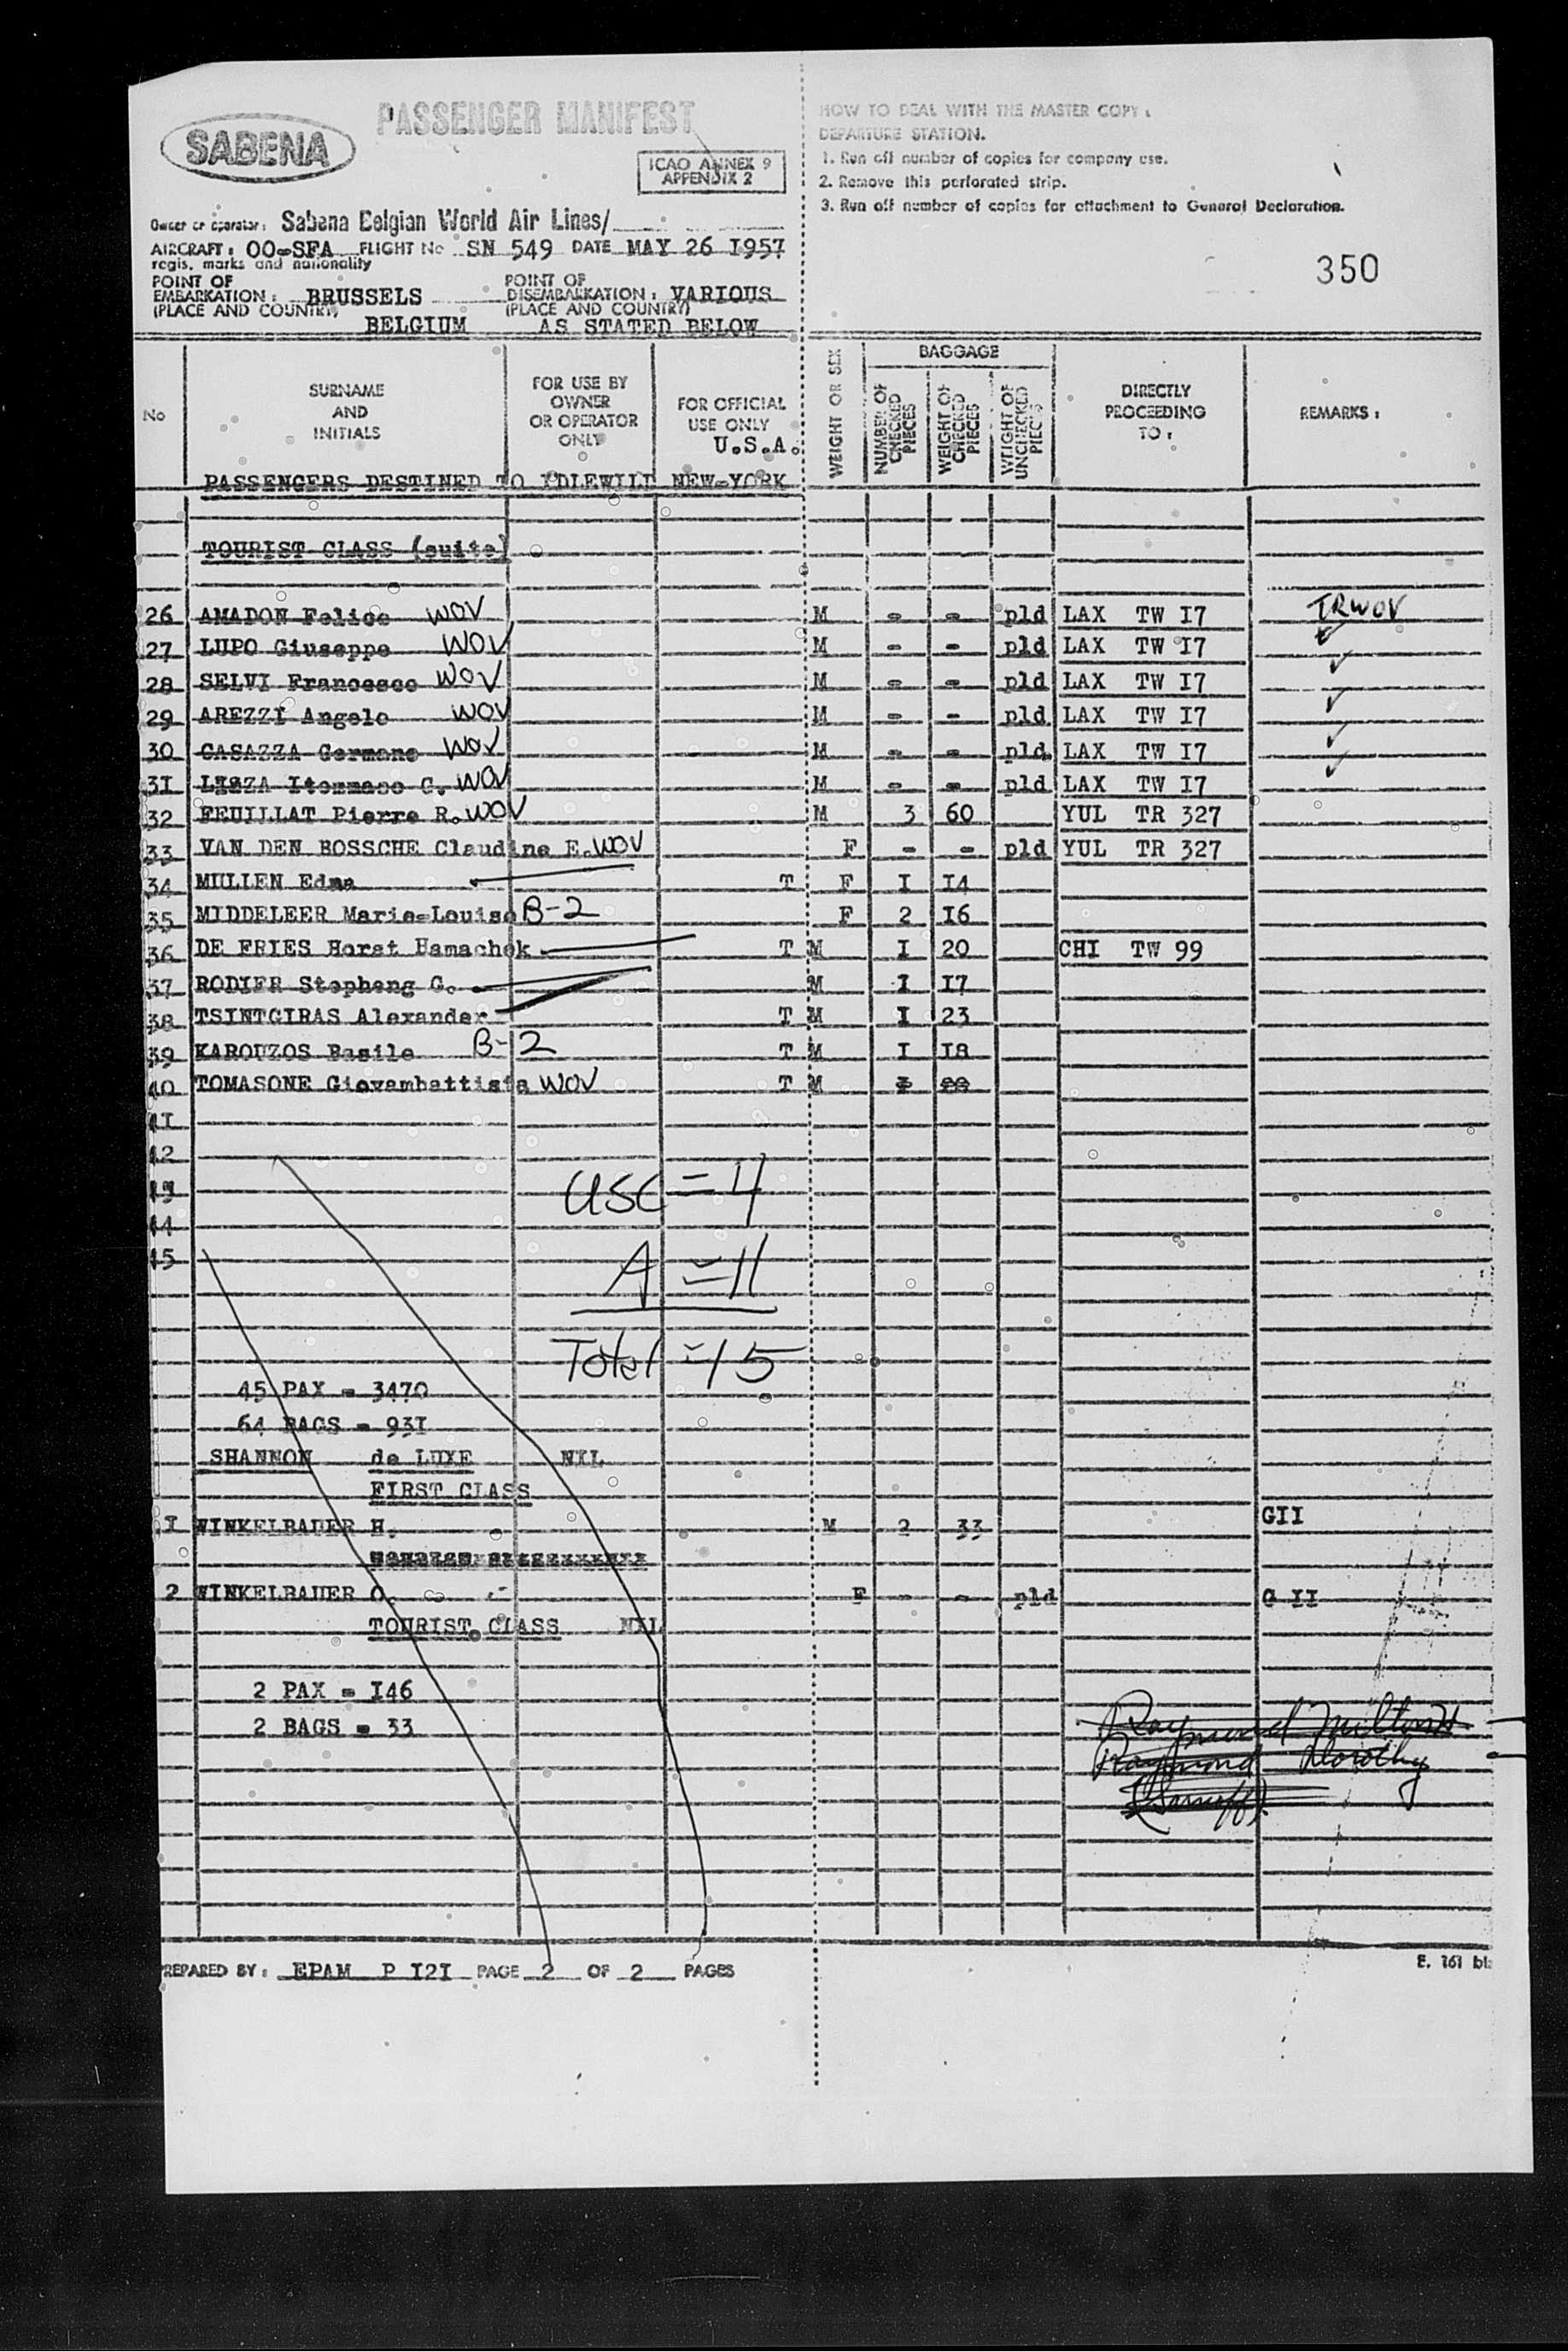 PASSENGER MANIFEST
SABENA
ICAO ANNEX 9
APPENDIX 2
HOW TO DEAL WITH THE MASTER COPY :
DEPARTURE STATION.
1. Run off number of copies for company use.
2. Remove this perforated strip.
3. Run off number of copies for attachment to General Declaration.
Owner or operator: Sabena Belgian World Air Lines/
AIRCRAFT: OO-SFA FLIGHT No SN 549 DATE MAY 26 I957
regis. marks and nationality
350
POINT OF EMBARKATION: BRUSSELS
(PLACE AND COUNTRY) BELGIUM
POINT OF DISEMBARKATION: VARIOUS
(PLACE AND COUNTRY) AS STATED BELOW
No
SURNAME AND INITIALS
FOR USE BY OWNER OR OPERATOR ONLY
FOR OFFICIAL USE ONLY U.S.A.
WEIGHT OR SEX
BAGGAGE
NUMBER OF CHECKED PIECES
WEIGHT OF CHECKED PIECES
WEIGHT OF UNCHECKED PIECES
DIRECTLY PROCEEDING TO:
REMARKS:
PASSENGERS DESTINED TO IDLEWILD NEW-YORK
TOURIST CLASS (suite)
26 AMADON Felice WOV M - - pld LAX TW I7 TRWOV
27 LUPO Giuseppe WOV M - - pld LAX TW I7
28 SELVI Francesco WOV M - - pld LAX TW I7
29 AREZZI Angelo WOV M - - pld LAX TW I7
30 CASAZZA Germano WOV M - - pld LAX TW I7
3I Itommaso C. WOV M - - pld LAX TW I7
32 FEUILLAT Pierre R. WOV M 3 60 YUL TR 327
33 VAN DEN BOSSCHE Claudine E. WOV F - - pld YUL TR 327
34 MULLEN Edma T F I I4
35 MIDDELEER Marie-Louise B-2 F 2 I6
36 DE FRIES Horst Hamachek T M I 20 CHI TW 99
37 RODIER Stepheng G. M I I7
38 TSINTGIRAS Alexander T M I 23
39 KAROUZOS Basile B-2 T M I I8
40 TOMASONE Giovambattista WOV T M
4I
42
43
44
45
USC = 4
A = 11
Total = 15
45 PAX = 3470
64 BAGS = 93I
SHANNON de LUXE NIL
FIRST CLASS
I WINKELBAUER H. M 2 33 GII
2 WINKELBAUER O. F - - pld G II
TOURIST CLASS NIL
2 PAX = I46
2 BAGS = 33
Raymond Milton
Raymond Dorothy
PREPARED BY: EPAM P I2I PAGE 2 OF 2 PAGES
E. 161 bis